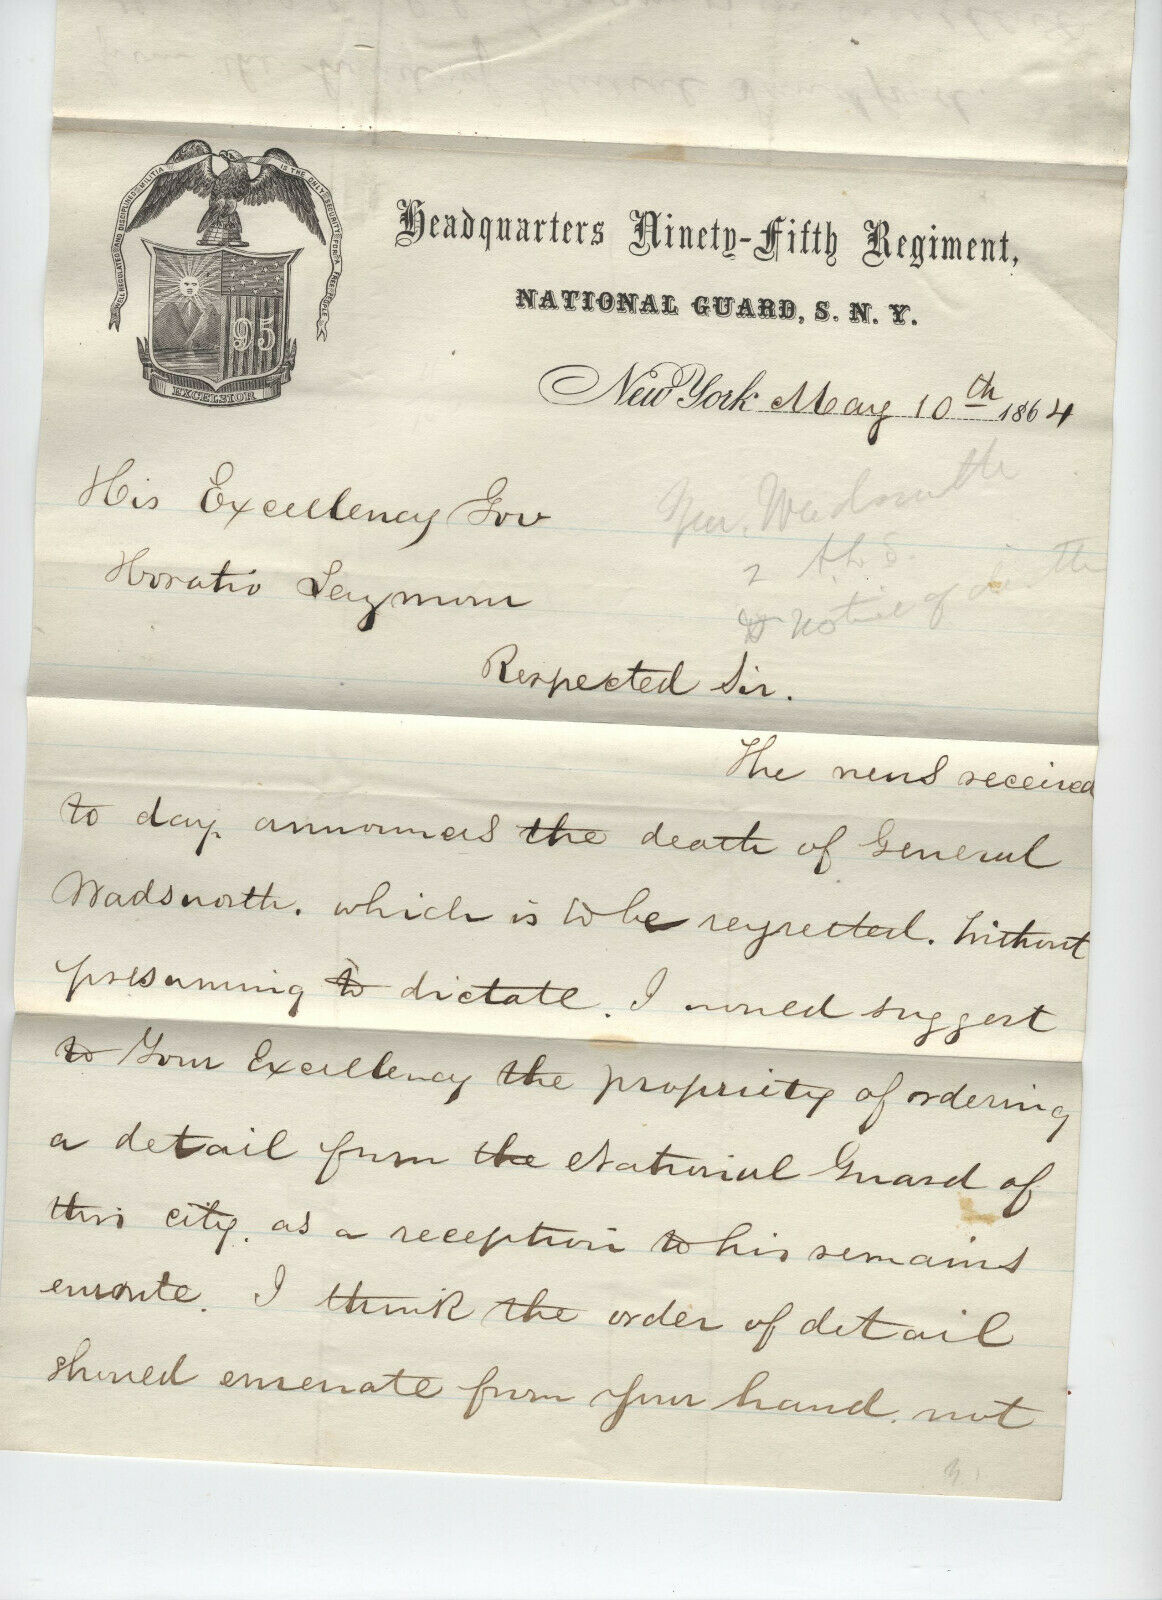 WELL REGULATED AND DISCIPLINED MILITIA
IS THE ONLY SECURITY FOR A FREE PEOPLE
95
EXCELSIOR
Headquarters Ninety-Fifth Regiment,
NATIONAL GUARD, S. N. Y.
New York May 10th 1864
Gen. Wadsworth
2 A.L.S.
Notice of
His Excellency Gov
Horatio Seymour
Respected Sir.
The news received
to day announces the death of General
Wadsworth. which is to be regretted. Without
presuming to dictate. I would suggest
to Your Excellency the propriety of ordering
a detail from the National Guard of
this city. as a reception to his remains
enroute. I think the order of detail
should emenate from your hand. not